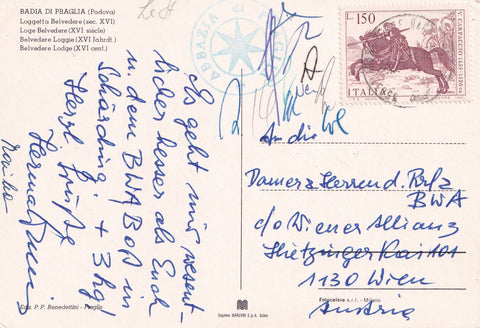 BADIA DI PRAGLIA (Padova)
Loggetta Belvedere (sec. XVI)
Loge Belvedere (XVI siècle)
Belvedere Loggie (XVI Jahrdt.)
Belvedere Lodge (XVI cent.)
ABBAZIA di PRAGLIA
L. 150
V. CARPACCIO
ITALIA
Es geht mir wesent-
licher besser als Euch
u. dem BWA Boß in
Schärding! + 3 kg!
Herzl. Grüße
Hermann
An die
Damen & Herren d.
BWA
c/o Wiener Allianz
Hietzinger Kai 101
1130 Wien
Austria
P. P. Benedettini - Praglia
Fotocelere s.r.l. - Milano